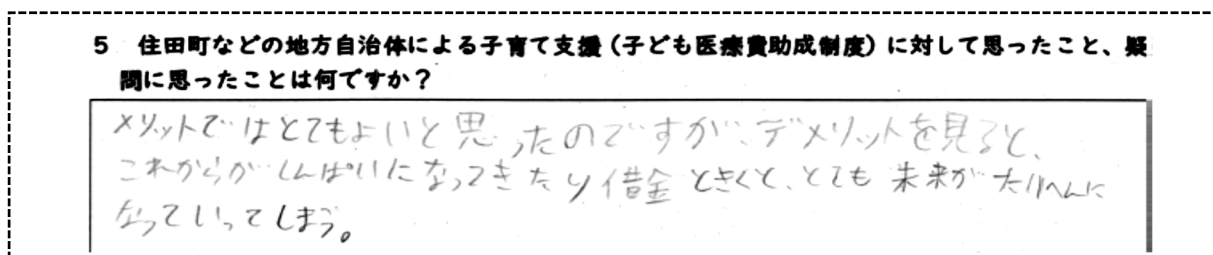 5 住田町などの地方自治体による子育て支援（子ども医療費助成制度）に対して思ったこと、疑
問に思ったことは何ですか？
メリットではとてもよいと思ったのですが、デメリットを見ると、
これからがしんぱいになってきたり借金ときくと、とても未来がたいへんに
なっていってしまう。